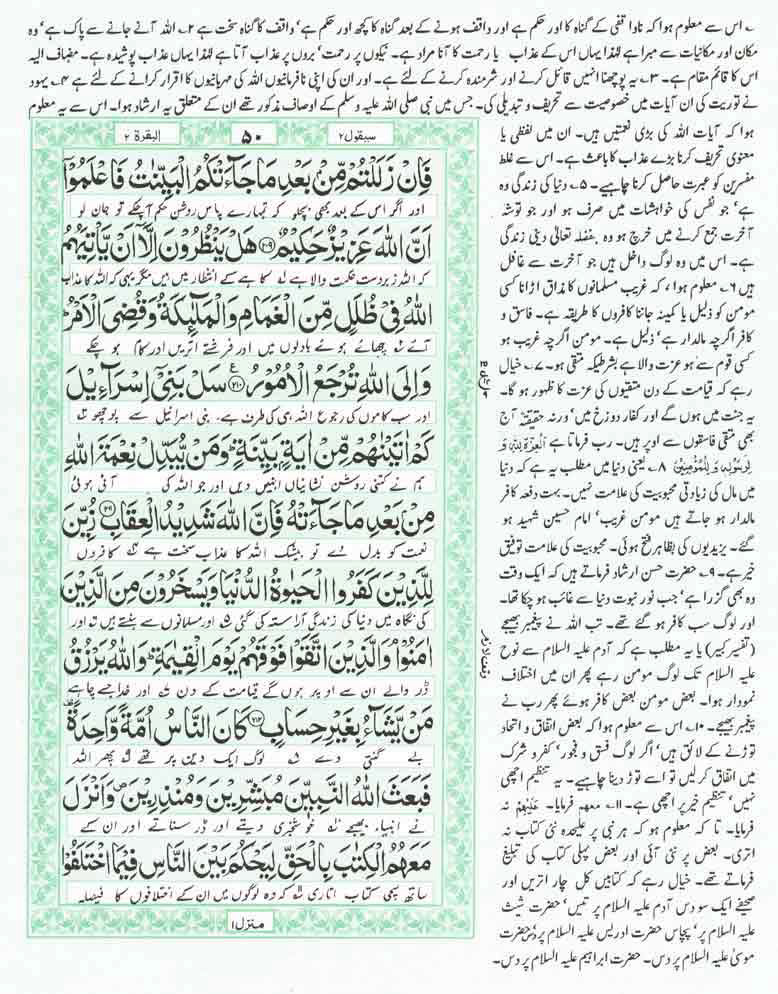 ۱؎ اس سے معلوم ہوا کہ ناواقفی کے گناہ کا اور حکم ہے اور واقف ہونے کے بعد گناہ کا کچھ اور حکم ہے، واقف کا گناہ سخت ہے ۲؎ اللہ آنے جانے سے پاک ہے، وہ
مکان اور مکانیات سے مبرا ہے لہٰذا یہاں اس کے عذاب یا رحمت کا آنا مراد ہے۔ نیکوں پر رحمت، بروں پر عذاب آتا ہے لہٰذا یہاں عذاب پوشیدہ ہے۔ مضاف الیہ
اس کا قائم مقام ہے۔ ۳؎ یہ پوچھنا انہیں قائل کرنے اور شرمندہ کرنے کے لئے ہے۔ اور ان کی اپنی نافرمانیوں اللہ کی مہربانیوں کا اقرار کرانے کے لئے ہے ۴؎ یہود
نے توریت کی ان آیات میں خصوصیت سے تحریف و تبدیلی کی۔ جس میں نبی صلی اللہ علیہ وسلم کے اوصاف مذکور تھے ان کے متعلق یہ ارشاد ہوا۔ اس سے یہ معلوم
ہوا کہ آیات اللہ کی بڑی نعمتیں ہیں۔ ان میں لفظی یا
معنوی تحریف کرنا بڑے عذاب کا باعث ہے۔ اس سے غلط
مفسرین کو عبرت حاصل کرنا چاہیے۔ ۵؎ دنیا کی زندگی وہ
ہے، جو نفس کی خواہشات میں صرف ہو اور جو توشہ
آخرت جمع کرنے میں خرچ ہو وہ بفضلہ تعالیٰ دینی زندگی
ہے۔ اس میں وہ لوگ داخل ہیں جو آخرت سے غافل
ہیں ۶؎ معلوم ہوا، کہ غریب مسلمانوں کا مذاق اڑانا کسی
مومن کو ذلیل یا کمینہ جاننا کافروں کا طریقہ ہے۔ فاسق و
کافر اگرچہ مالدار ہے، ذلیل ہے۔ مومن اگرچہ غریب ہو
کسی قوم سے ہو عزت والا ہے بشرطیکہ متقی ہو۔ ۷؎ خیال
رہے کہ قیامت کے دن متقیوں کی عزت کا ظہور ہو گا۔
یہ جنت میں ہوں گے اور کفار دوزخ میں، ورنہ حقیقتہً آج
بھی متقی فاسقوں سے اوپر ہیں۔ رب فرماتا ہے الْعِزَّةُ لِلّٰهِ وَ
لِرَسُوْلِهٖ وَ لِلْمُؤْمِنِيْنَ ۸؎ یعنی دنیا میں مطلب یہ ہے کہ دنیا
میں مال کی زیادتی محبوبیت کی علامت نہیں۔ بہت دفعہ کافر
مالدار ہو جاتے ہیں مومن غریب، امام حسین شہید ہو
گئے۔ یزیدیوں کی بظاہر فتح ہوئی۔ محبوبیت کی علامت توفیق
خیر ہے۔ ۹؎ حضرت حسن ارشاد فرماتے ہیں کہ ایک وقت
وہ بھی گزرا ہے، جب نور نبوت دنیا سے غائب ہو چکا تھا۔
اور لوگ سب کافر ہو گئے تھے۔ تب اللہ نے پیغمبر بھیجے
(تفسیر کبیر) یا یہ مطلب ہے کہ آدم علیہ السلام سے نوح
علیہ السلام تک لوگ مومن رہے پھر ان میں اختلاف
نمودار ہوا۔ بعض مومن بعض کافر ہوئے پھر رب نے
پیغمبر بھیجے۔ ۱۰؎ اس سے معلوم ہوا کہ بعض اتفاق و اتحاد
توڑنے کے لائق ہیں، اگر لوگ فسق و فجور، کفر و شرک
میں اتفاق کر لیں تو اسے توڑ دینا چاہیے۔ یہ تنظیم اچھی
نہیں، تنظیم خیر پر اچھی ہے۔ ۱۱؎ معهم فرمایا۔ علیهم نہ
فرمایا۔ تا کہ معلوم ہو کہ ہر نبی پر علیحدہ نئی کتاب نہ
اتری۔ بعض پر نئی آئی اور بعض پہلی کتاب کی تبلیغ
فرماتے تھے۔ خیال رہے کہ کتابیں کل چار اتریں اور
صحیفے ایک سو دس آدم علیہ السلام پر تیس، حضرت شیث
علیہ السلام پر، پچاس حضرت ادریس علیہ السلام پر دس، حضرت
موسیٰ علیہ السلام پر دس۔ حضرت ابراہیم علیہ السلام پر دس۔
سیقول ۲ ۵۰ البقرة ۲
فَاِنْ زَلَلْتُمْ مِّنْۢ بَعْدِ مَا جَآءَتْكُمُ الْبَيِّنٰتُ فَاعْلَمُوْۤا
اور اگر اس کے بعد بھی بچلو کہ تمہارے پاس روشن حکم آچکے تو جان لو
اَنَّ اللّٰهَ عَزِيْزٌ حَكِيْمٌ ﴿۲۰۹﴾ هَلْ يَنْظُرُوْنَ اِلَّاۤ اَنْ يَّاْتِيَهُمُ
کہ اللہ زبردست حکمت والا ہے لہ کاہے کے انتظار میں ہیں مگر یہی کہ اللہ کا عذاب
اللّٰهُ فِيْ ظُلَلٍ مِّنَ الْغَمَامِ وَالْمَلٰٓئِكَةُ وَقُضِيَ الْاَمْرُ
آئے چھائے ہوئے بادلوں میں اور فرشتے اتریں اور کام ہو چکے
وَاِلَى اللّٰهِ تُرْجَعُ الْاُمُوْرُ ﴿۲۱۰﴾ سَلْ بَنِيْۤ اِسْرَآءِيْلَ
اور سب کاموں کی رجوع اللہ ہی کی طرف ہے۔ بنی اسرائیل سے پوچھو
كَمْ اٰتَيْنٰهُمْ مِّنْ اٰيَةٍۭ بَيِّنَةٍ وَمَنْ يُّبَدِّلْ نِعْمَةَ اللّٰهِ
ہم نے کتنی روشن نشانیاں انہیں دیں اور جو اللہ کی آئی ہوئی
مِنْۢ بَعْدِ مَا جَآءَتْهُ فَاِنَّ اللّٰهَ شَدِيْدُ الْعِقَابِ ﴿۲۱۱﴾ زُيِّنَ
نعمت کو بدل دے تو بیشک اللہ کا عذاب سخت ہے کافروں
لِلَّذِيْنَ كَفَرُوا الْحَيٰوةُ الدُّنْيَا وَيَسْخَرُوْنَ مِنَ الَّذِيْنَ
کی نگاہ میں دنیا کی زندگی آراستہ کی گئی اور مسلمانوں سے ہنستے ہیں اور
اٰمَنُوْا وَالَّذِيْنَ اتَّقَوْا فَوْقَهُمْ يَوْمَ الْقِيٰمَةِ وَاللّٰهُ يَرْزُقُ
ڈر والے ان سے اوپر ہوں گے قیامت کے دن اور خدا جسے چاہے
مَنْ يَّشَآءُ بِغَيْرِ حِسَابٍ ﴿۲۱۲﴾ كَانَ النَّاسُ اُمَّةً وَّاحِدَةً
بے گنتی دے لوگ ایک دین پر تھے پھر اللہ
فَبَعَثَ اللّٰهُ النَّبِيّٖنَ مُبَشِّرِيْنَ وَمُنْذِرِيْنَ وَاَنْزَلَ
نے انبیاء بھیجے خوشخبری دیتے اور ڈر سناتے اور ان کے
مَعَهُمُ الْكِتٰبَ بِالْحَقِّ لِيَحْكُمَ بَيْنَ النَّاسِ فِيْمَا اخْتَلَفُوْا
ساتھ سچی کتاب اتاری کہ وہ لوگوں میں ان کے اختلافوں کا فیصلہ
منزل ۱